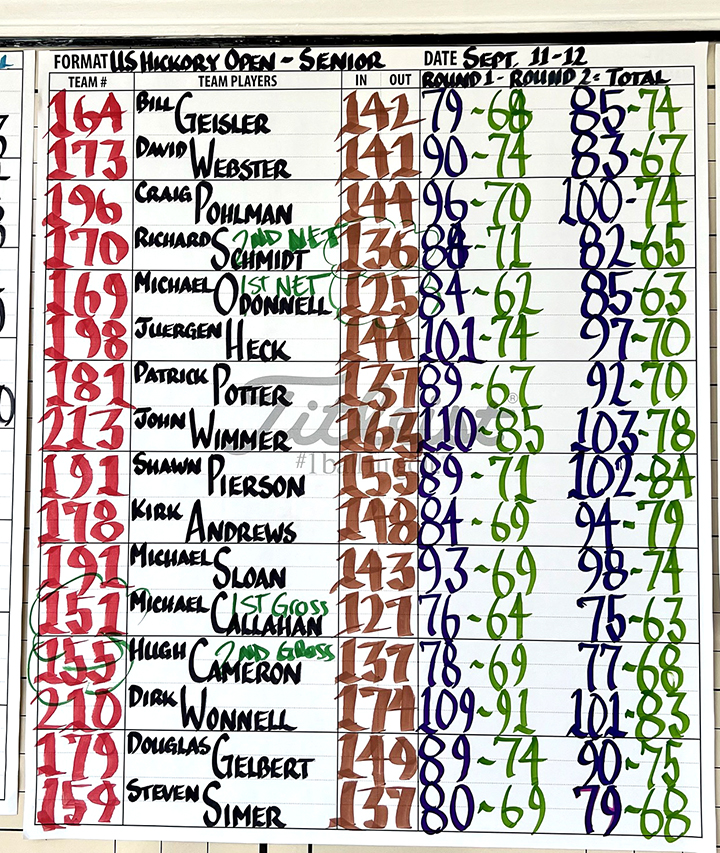 FORMAT US HICKORY OPEN - SENIOR DATE SEPT. 11-12
TEAM # TEAM PLAYERS IN OUT ROUND 1 - ROUND 2 = TOTAL
164 BILL GEISLER 142 79~68 85-74
173 DAVID WEBSTER 141 90~74 83-67
196 CRAIG POHLMAN 144 96~70 100-74
170 RICHARD SCHMIDT 2ND NET 136 88~71 82-65
169 MICHAEL ODONNELL 1ST NET 125 84~62 85-63
198 JUERGEN HECK 144 101-74 97-70
181 PATRICK POTTER 137 89~67 92-70
Titleist®
213 JOHN WIMMER 163 110~85 103-78
191 SHAWN PIERSON 155 89~71 102-84
178 KIRK ANDREWS 148 84~69 94-79
191 MICHAEL SLOAN 143 93~69 98-74
151 MICHAEL CALLAHAN 1ST GROSS 127 76~64 75-63
155 HUGH CAMERON 2ND GROSS 137 78~69 77-68
210 DIRK WONNELL 174 109~91 101-83
179 DOUGLAS GELBERT 149 89~74 90-75
159 STEVEN SIMER 137 80~69 79-68